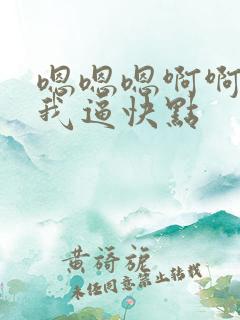 嗯嗯嗯啊啊
我逼快點
黄旖旎
未经同意禁止转载